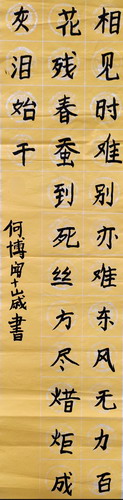 相见时难别亦难东风无力百
花残春蚕到死丝方尽焟炬成
灰泪始干
何博十歲書